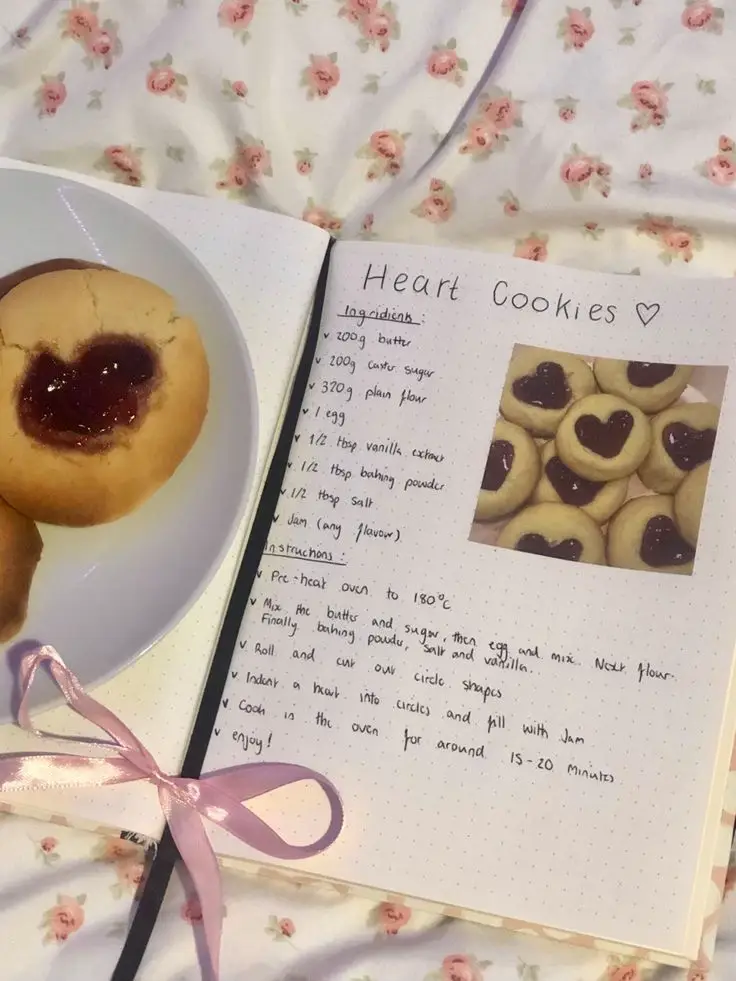 Heart Cookies ♡
Ingridients :
200g butter
200g caster sugar
320g plain flour
1 egg
1/2 tbsp vanilla extract
1/2 tbsp baking powder
1/2 tbsp salt
Jam (any flavour)
Instructions :
Pre-heat oven to 180°C
Mix the butter and sugar, then egg and mix. Next flour.
Finally baking powder, salt and vanilla.
Roll and cut out circle shapes
Indent a heart into circles and fill with Jam
Cook in the oven for around 15-20 minutes
enjoy!